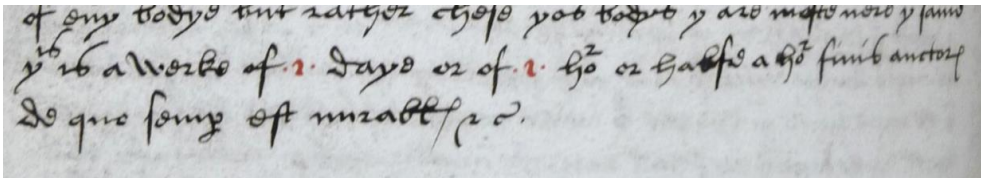 of eny bodye but rather chese yos bodys y are moste nere y same
yis is a werke of .1. daye or of .1. hor or halfe a hor finis auctor
de quo semp est mirabil & c.